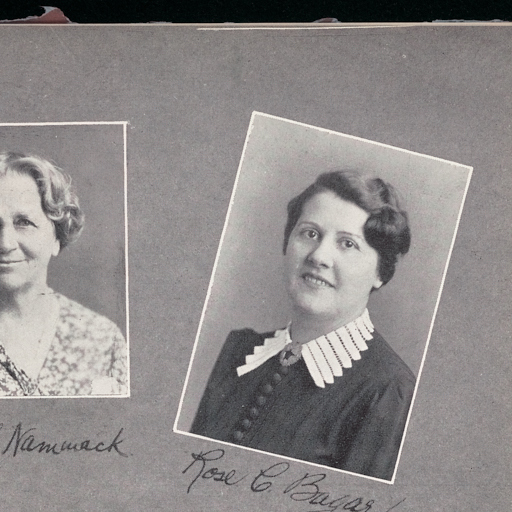 Nammack
Rose C. Bagar